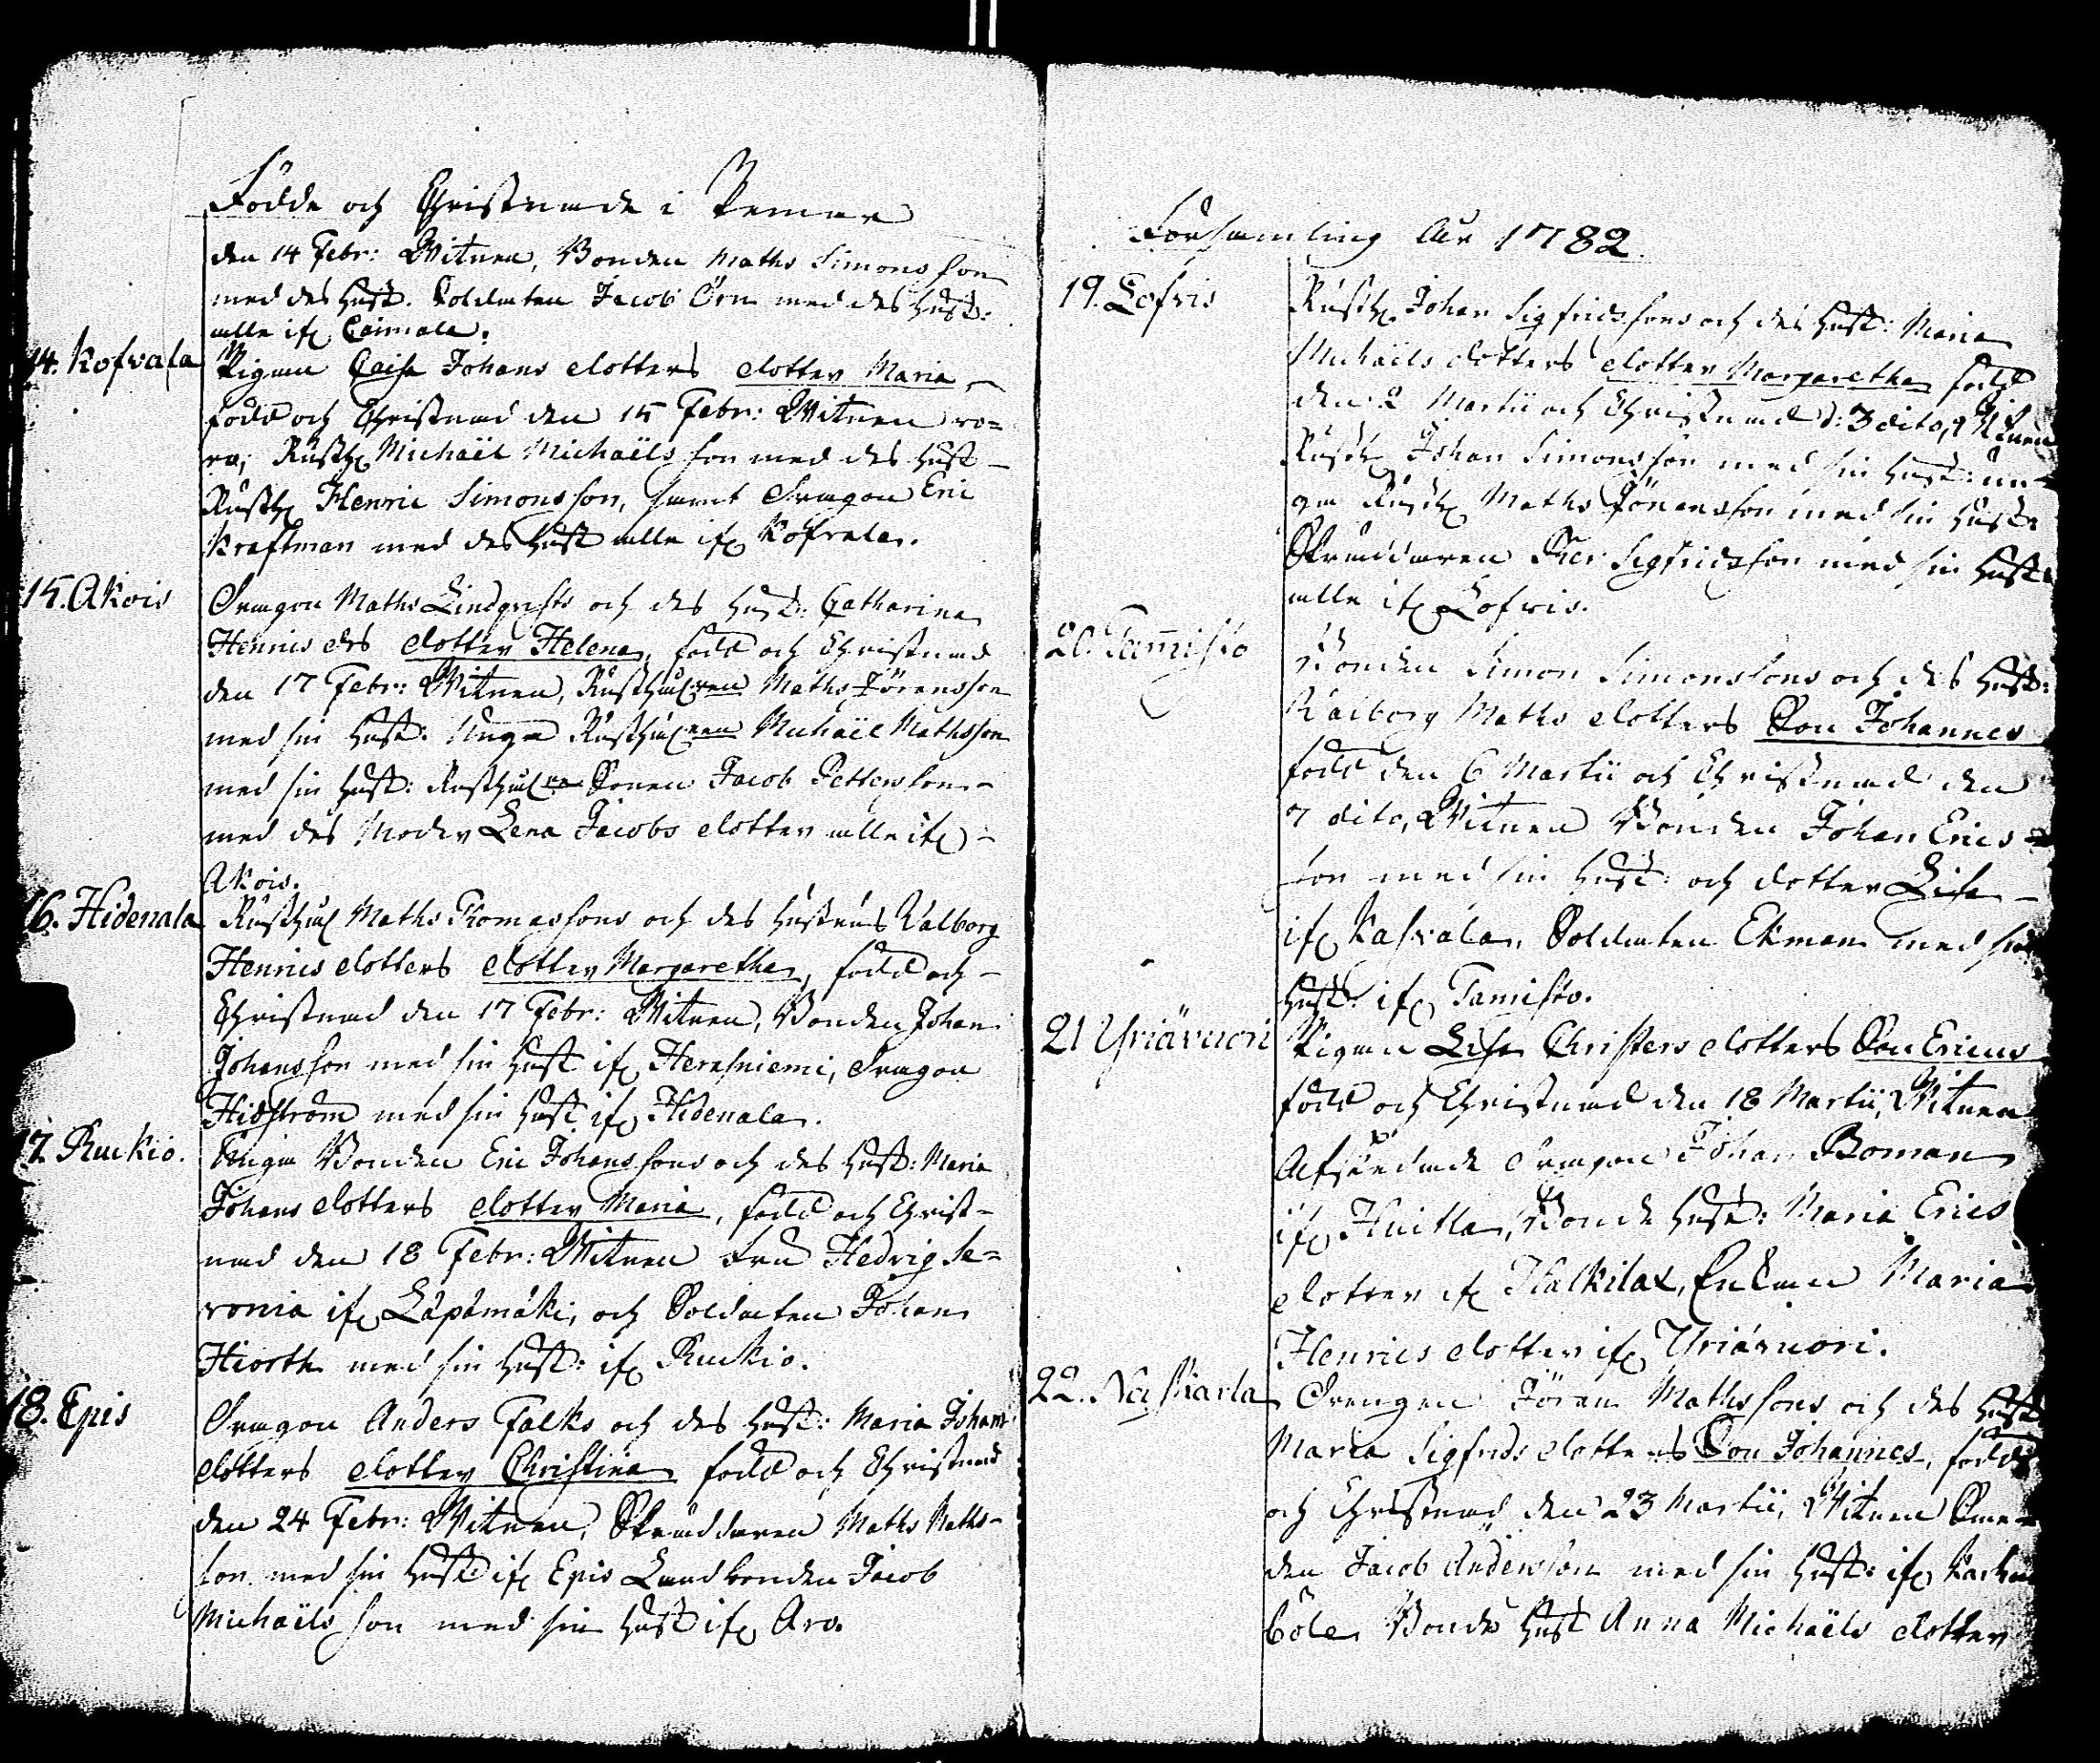 Födde och Christnade i Pemar
den 14 Febr: Witnen, Bonden Maths Simonsson
med des Hust. Soldaten Jacob Örn med des Hust:
alla ifr. Caimala.
14. Kofvala Pigan Caisa Johans dotters dotter Maria,
född och Christnad den 15 Febr: Witnen vo=
ro, Rusth. Michaël Michaëls son med des Hust
Rusth. Henric Simonsson, samt Dragon Eric
Kraftman med des Hust alla ifr. Kofvala.
15. Akois Dragon Maths Lindqvists och des Hust: Catharina
Henrics drs dotter Helena, född och Christnad
den 17 Febr: Witnen, Rusthållaren Maths Jöransson
med sin Hust: Unga Rusthållaren Michaël Mathsson
med sin Hust: Rusthåll. Sonen Jacob Petterson
med des Moder Lena Jacobs dotter alla ifr.
Akois.
16. Hidenala Rusthåll Maths Thomassons och des Hustrus Valborg
Henrics dotters dotter Margaretha, född och
Christnad den 17 Febr: Witnen, Bonden Johan
Johansson med sin Hust ifr. Herasniemi, Dragon
Hidström med sin Hust ifr. Hidenala.
17. Ruckio. Unga Bonden Eric Johanssons och des Hust: Maria
Johans dotters dotter Maria, född och Christ-
nad den 18 Febr: Witnen Fru Hedvig Se=
vonia ifr. Läpämäki, och Soldaten Johan
Hiorth med sin Hust: ifr. Ruckio.
18. Epis Dragon Anders Falks och des Hust: Maria Johans
dotters dotter Christina född och Christnad
den 24 Febr: Witnen, Skräddaren Maths Maths-
son med sin Hust ifr. Epis Landbonden Jacob
Michaëls son med sin Hust ifr. Aro.
Församling År 1782.
19. Lofris Rusth. Johan Sigfridssons och des Hust: Maria
Michaëls dotters dotter Margaretha född
den 2 Martii och Christnad d: 3 dito, Witnen
Rusth. Johan Simonsson med sin Hust: un-
ga Rusth. Maths Jöransson med sin Hust:
Skräddaren Sigfridsson med sin Hust:
alla ifr. Lofris.
20. Tamisto Bonden Simon Simonssons och des Hust:
Valborg Maths dotters Son Johannes
född den 6 Martii och Christnad den
7 dito, Witnen Bonden Johan Erics
son med sin Hust: och dotter Lisa
ifr. Kasvala, Soldaten Ekman med sin
Hust: ifr. Tamisto.
21 Yriävuori Pigan Lisa Christers dotters Son Ericus
född och Christnad den 18 Martii, Witnen
Afskedade Dragon Johan Boman
ifr. Huitla, Bonde Hust: Maria Erics
dotter ifr. Halkilax, Enkan Maria
Henrics dotter ifr. Yriävuori.
22. Naskarla Drengen Jöran Mathssons och des Hust
Maria Sigfrids dotters Son Johannes, född
och Christnad den 23 Martii, Witnen Sme-
den Jacob Andersson med sin Hust: ifr.
böle Bonde Hust Anna Michaëls dotter